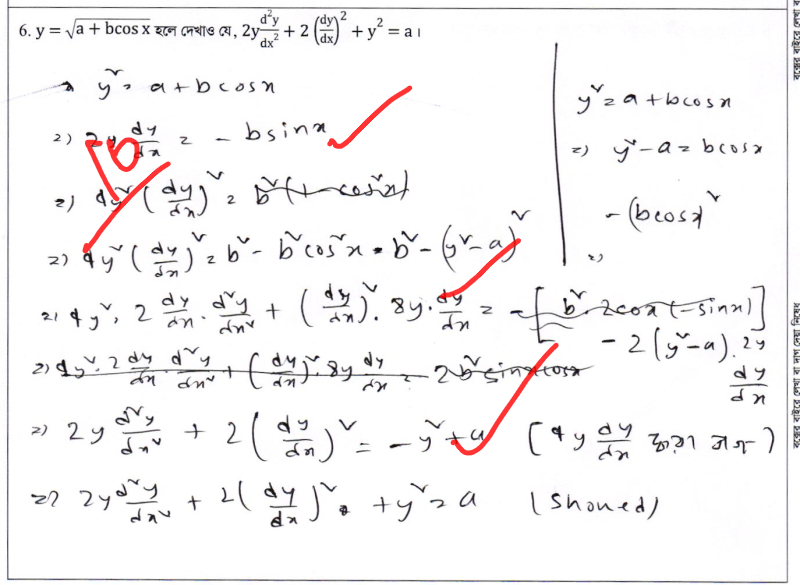 6. y = √(a + bcos x) হলে দেখাও যে, 2y d²y/dx² + 2 (dy/dx)² + y² = a ।
y² = a + b cosx
=) 2y dy/dx = - b sinx
=) 4y² (dy/dx)² = b² (1 - cos²x)
=) 4y² (dy/dx)² = b² - b² cos²x = b² - (y² - a)²
=) 4y². 2 dy/dx . d²y/dx² + (dy/dx)². 8y. dy/dx = - [b². 2cosx (-sinx)]
- 2 (y² - a). 2y dy/dx
=) 4y². 2 dy/dx . d²y/dx² + (dy/dx)². 8y dy/dx = 2b² sinx cosx
=) 2y d²y/dx² + 2 (dy/dx)² = - y² + a [4y dy/dx দ্বারা ভাগ)
=) 2y d²y/dx² + 2 (dy/dx)² + y² = a (showed)
y² = a + b cosx
=) y² - a = b cosx
- (b cosx)²
=)